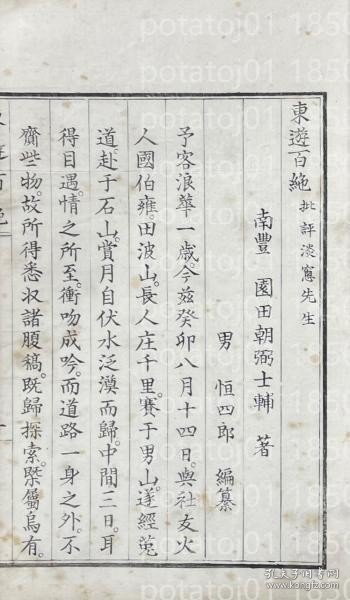 東遊百絶 批評淡窓先生
南豐 園田朝弼士輔 著
男 恒四郎 編纂
予客浪華一歳。今茲癸卯八月十四日。與社友火
人國伯雍。田波山。長人庄千里。賽于男山。遂經菟
道。赴于石山。賞月自伏水泛澱而歸。中間三日。耳
得目遇。情之所至。衝吻成吟。而道路一身之外。不
齎些物。故所得悉収諸腹稿。既歸探索。槩屬烏有。
potatoj01 1850
孔夫子旧书网